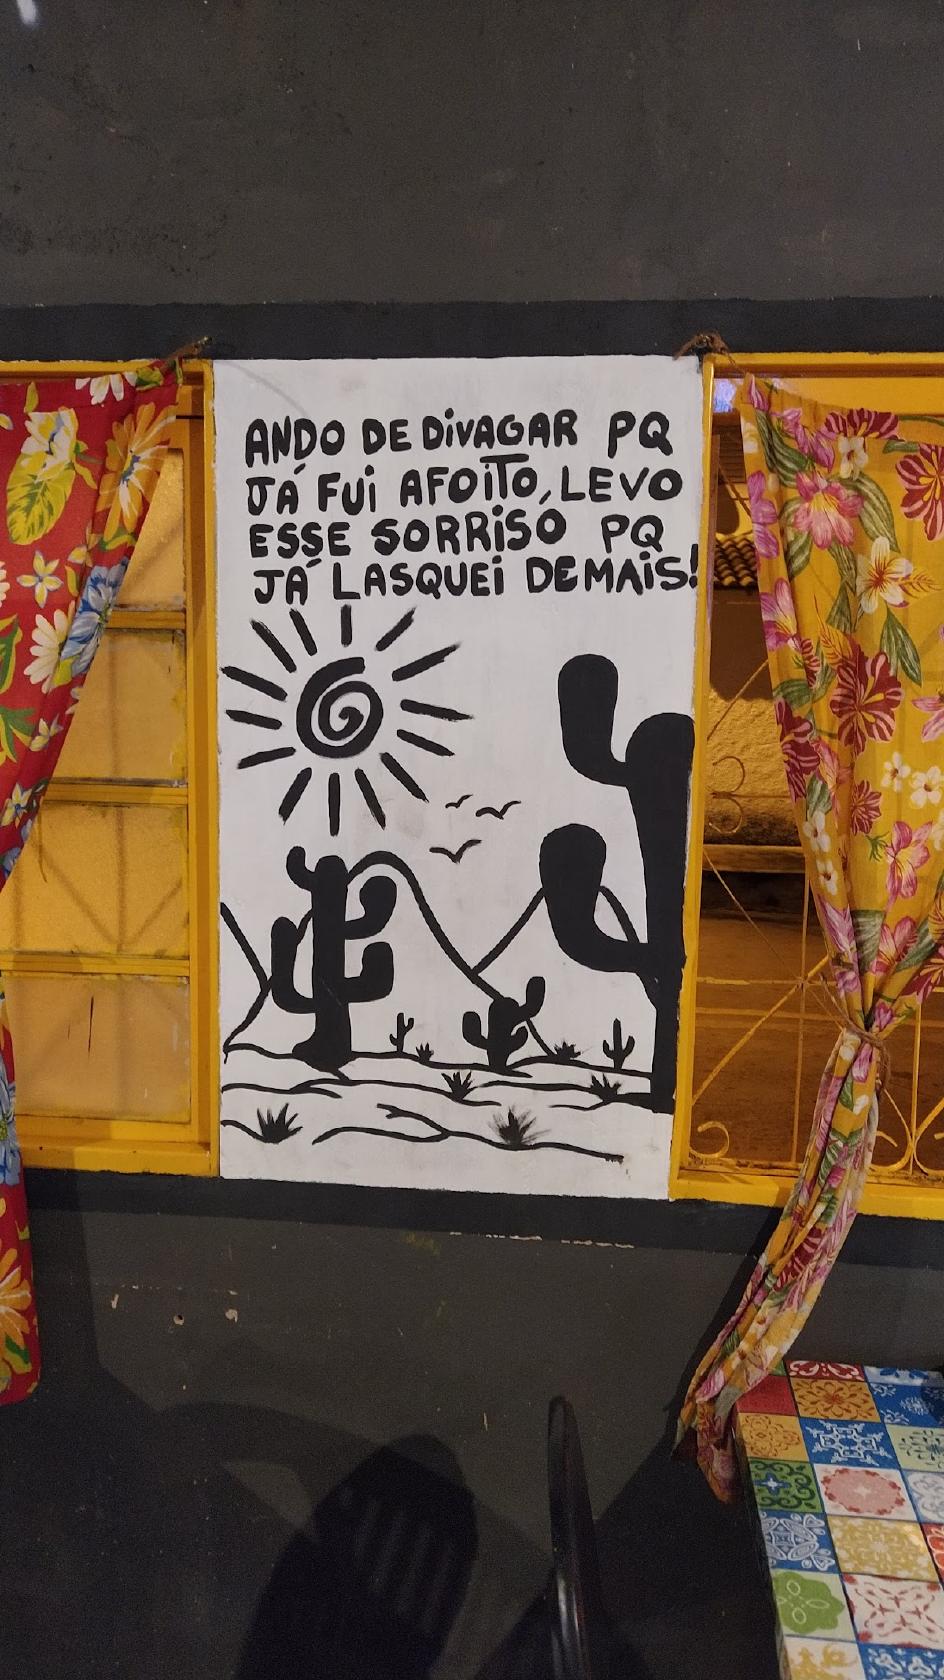 ANDO DE DiVAGAR PQ
JÁ FUi AFOiTO, LEVO
ESSE SORRiSO PQ
JÁ LASQUEi DEMAiS!